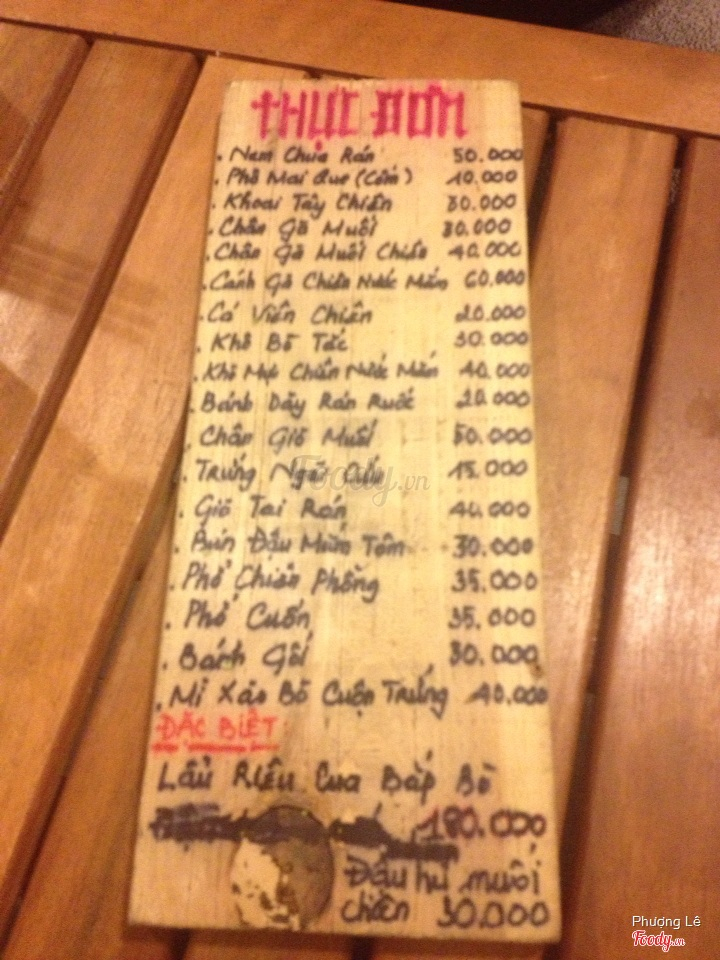 THỰC ĐƠN
. Nem Chua Rán 50.000
. Phô Mai Que (Cốm) 10.000
. Khoai Tây Chiên 30.000
. Chân Gà Muối 30.000
. Chân Gà Muối Chiên 40.000
. Cánh Gà Chiên Nước Mắm 60.000
. Cá Viên Chiên 20.000
. Khô Bò Tắc 30.000
. Khô Mực Chiên Nước Mắm 40.000
. Bánh Dày Rán Ruốc 20.000
. Chân Giò Muối 50.000
. Trứng Ngải Cứu 15.000
. Giò Tai Rán 40.000
. Bún Đậu Mắm Tôm 30.000
. Phở Chiên Phồng 35.000
. Phở Cuốn 35.000
. Bánh Gối 30.000
. Mì Xào Bò Cuộn Trứng 40.000
ĐẶC BIỆT:
Lẩu Riêu Cua Bắp Bò
180.000
Đậu hũ muối
chiên 30.000
Foody.vn
Phượng Lê
Foody.vn